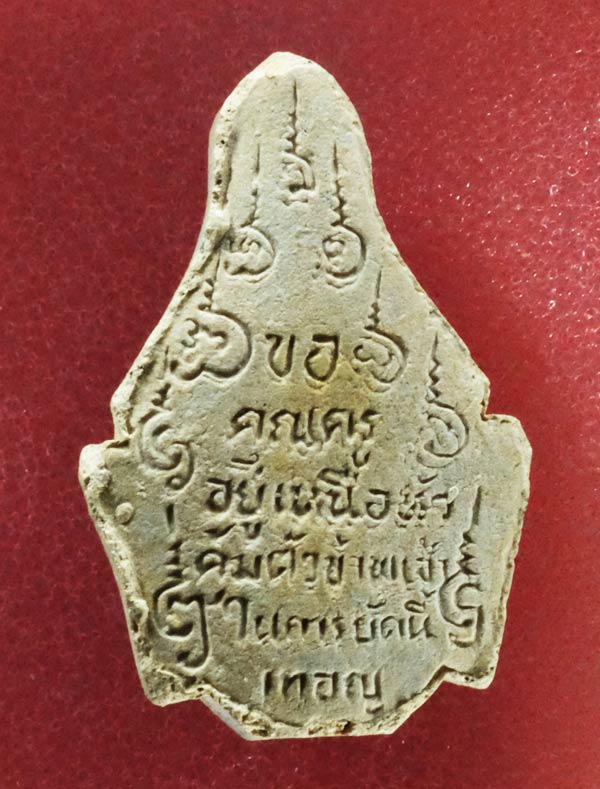 ขอ
คุณครู
อยู่เหนือหัว
คุ้มตัวข้าพเจ้า
ในการบัดนี้
เทอญ